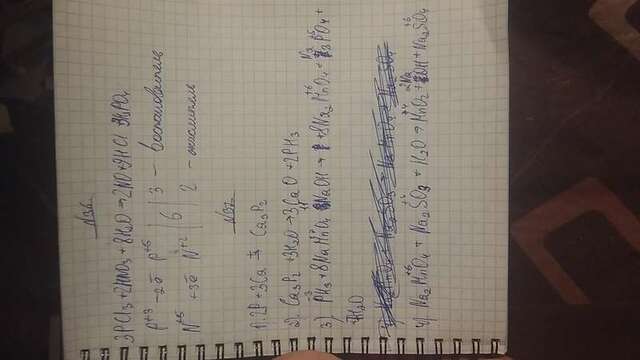 №36
3PCl₃ + 2HNO₃ + 8H₂O → 2NO + 9HCl 3H₃PO₄
P⁺³ -2ē P⁺⁵ | 6 | 3 - восстановитель
N⁺⁵ +3ē N⁺² 2 - окислитель
№37
1) 2P + 3Ca = Ca₃P₂
2) Ca₃P₂ + 3H₂O → 3CaO + 2PH₃
3) PH₃ + 8NaMnO₄ NaOH → +8Na₂MnO₄ + Na₃PO₄ +
H₂O
4) Na₂MnO₄ + Na₂SO₃ + H₂O → MnO₂ + 2NaOH + Na₂SO₄